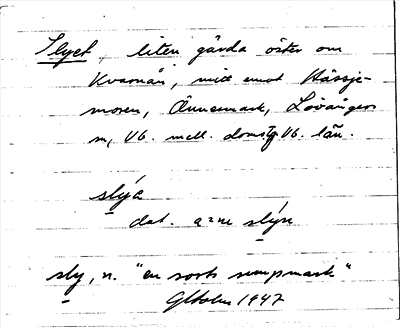 Slyet, liten gärda öster om
Kvarnån, mitt emot Hässje-
moren, Önnemark, Lövånger
sn, Vb. mell. domsg Vb. län.
slýa
dat. a=ne slýn
sly, n. "en sorts sumpmark"
GHolm 1947